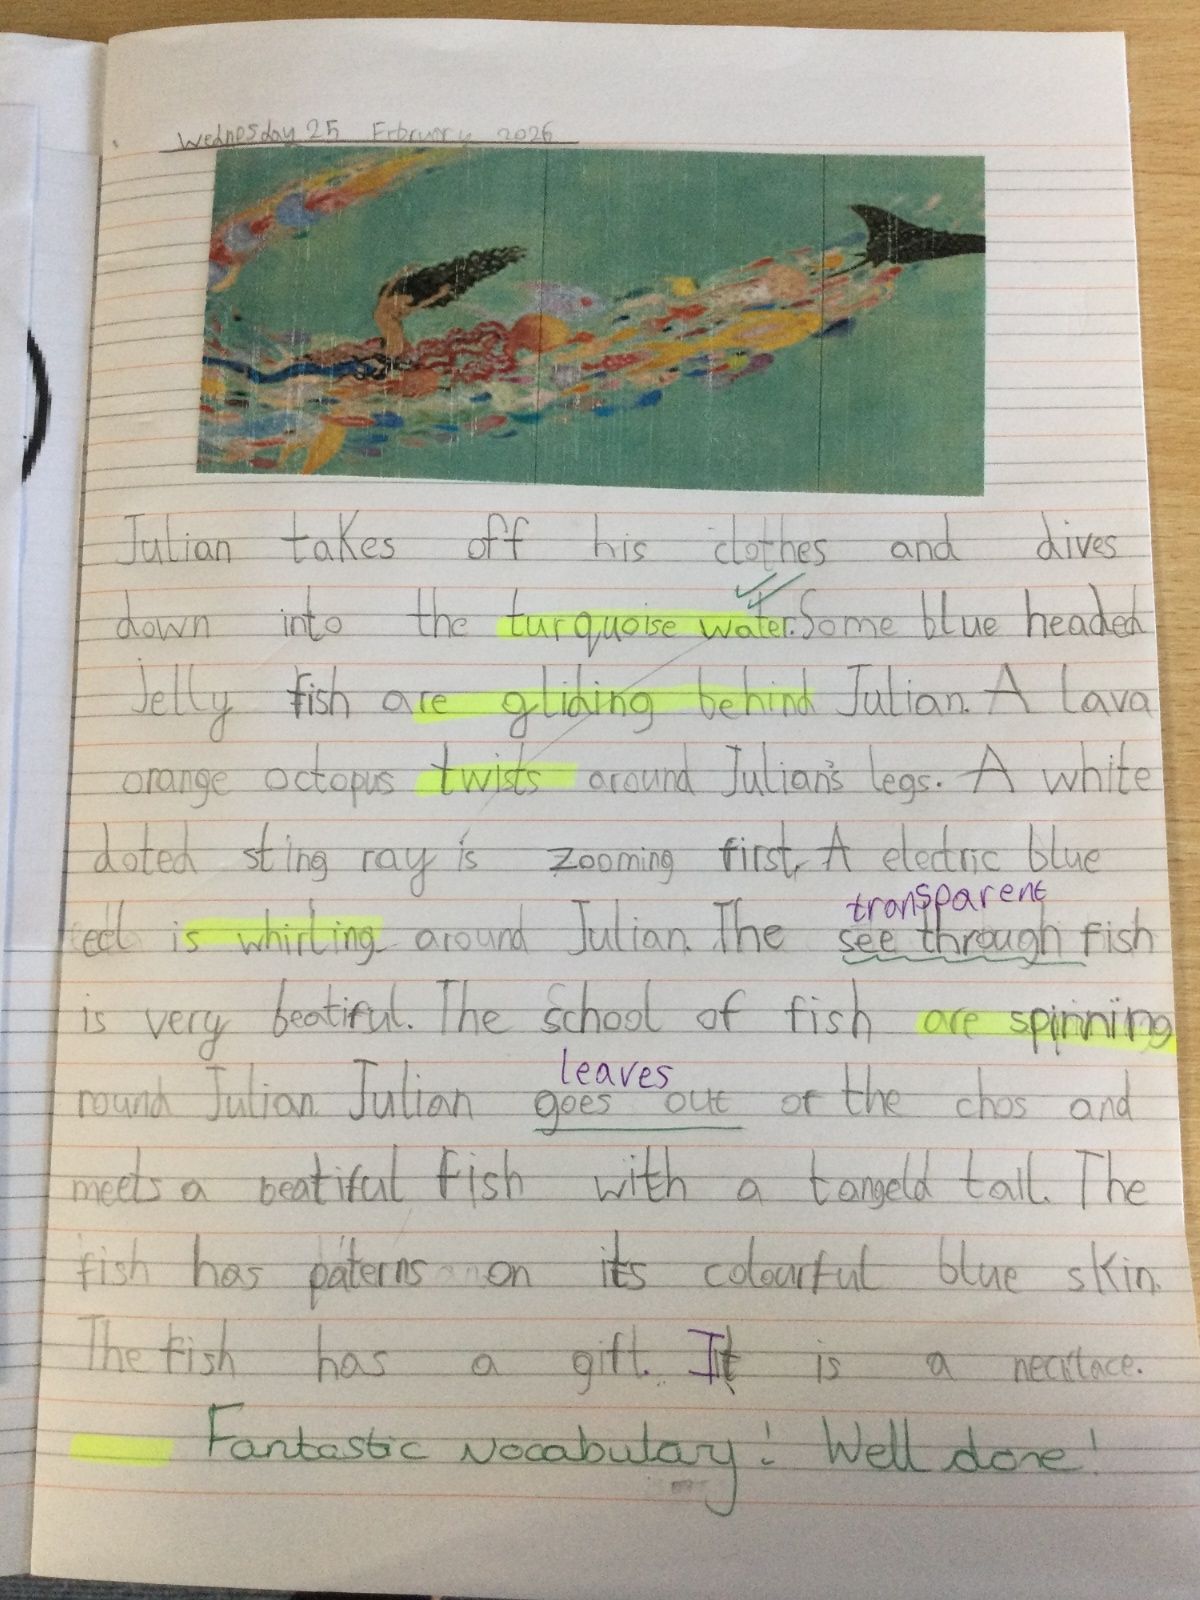 Wednesday 25 Erbruary 2026
Julian takes off his clothes and dives
down into the turquoise water. Some blue headed
Jelly fish are gliding behind Julian. A lava
orange octopus twists around Julian's legs. A white
doted sting ray is zooming first, A electric blue
is whirling around Julian. The see through fish
transparent
is very beatiful. The School of fish are spinning
round Julian. Julian goes out of the chos and
leaves
meets a beatiful fish with a tangeld tail. The
fish has paterns on its colourful blue skin.
The fish has a gift. It is a necklace.
Fantastic vocabulary! Well done!